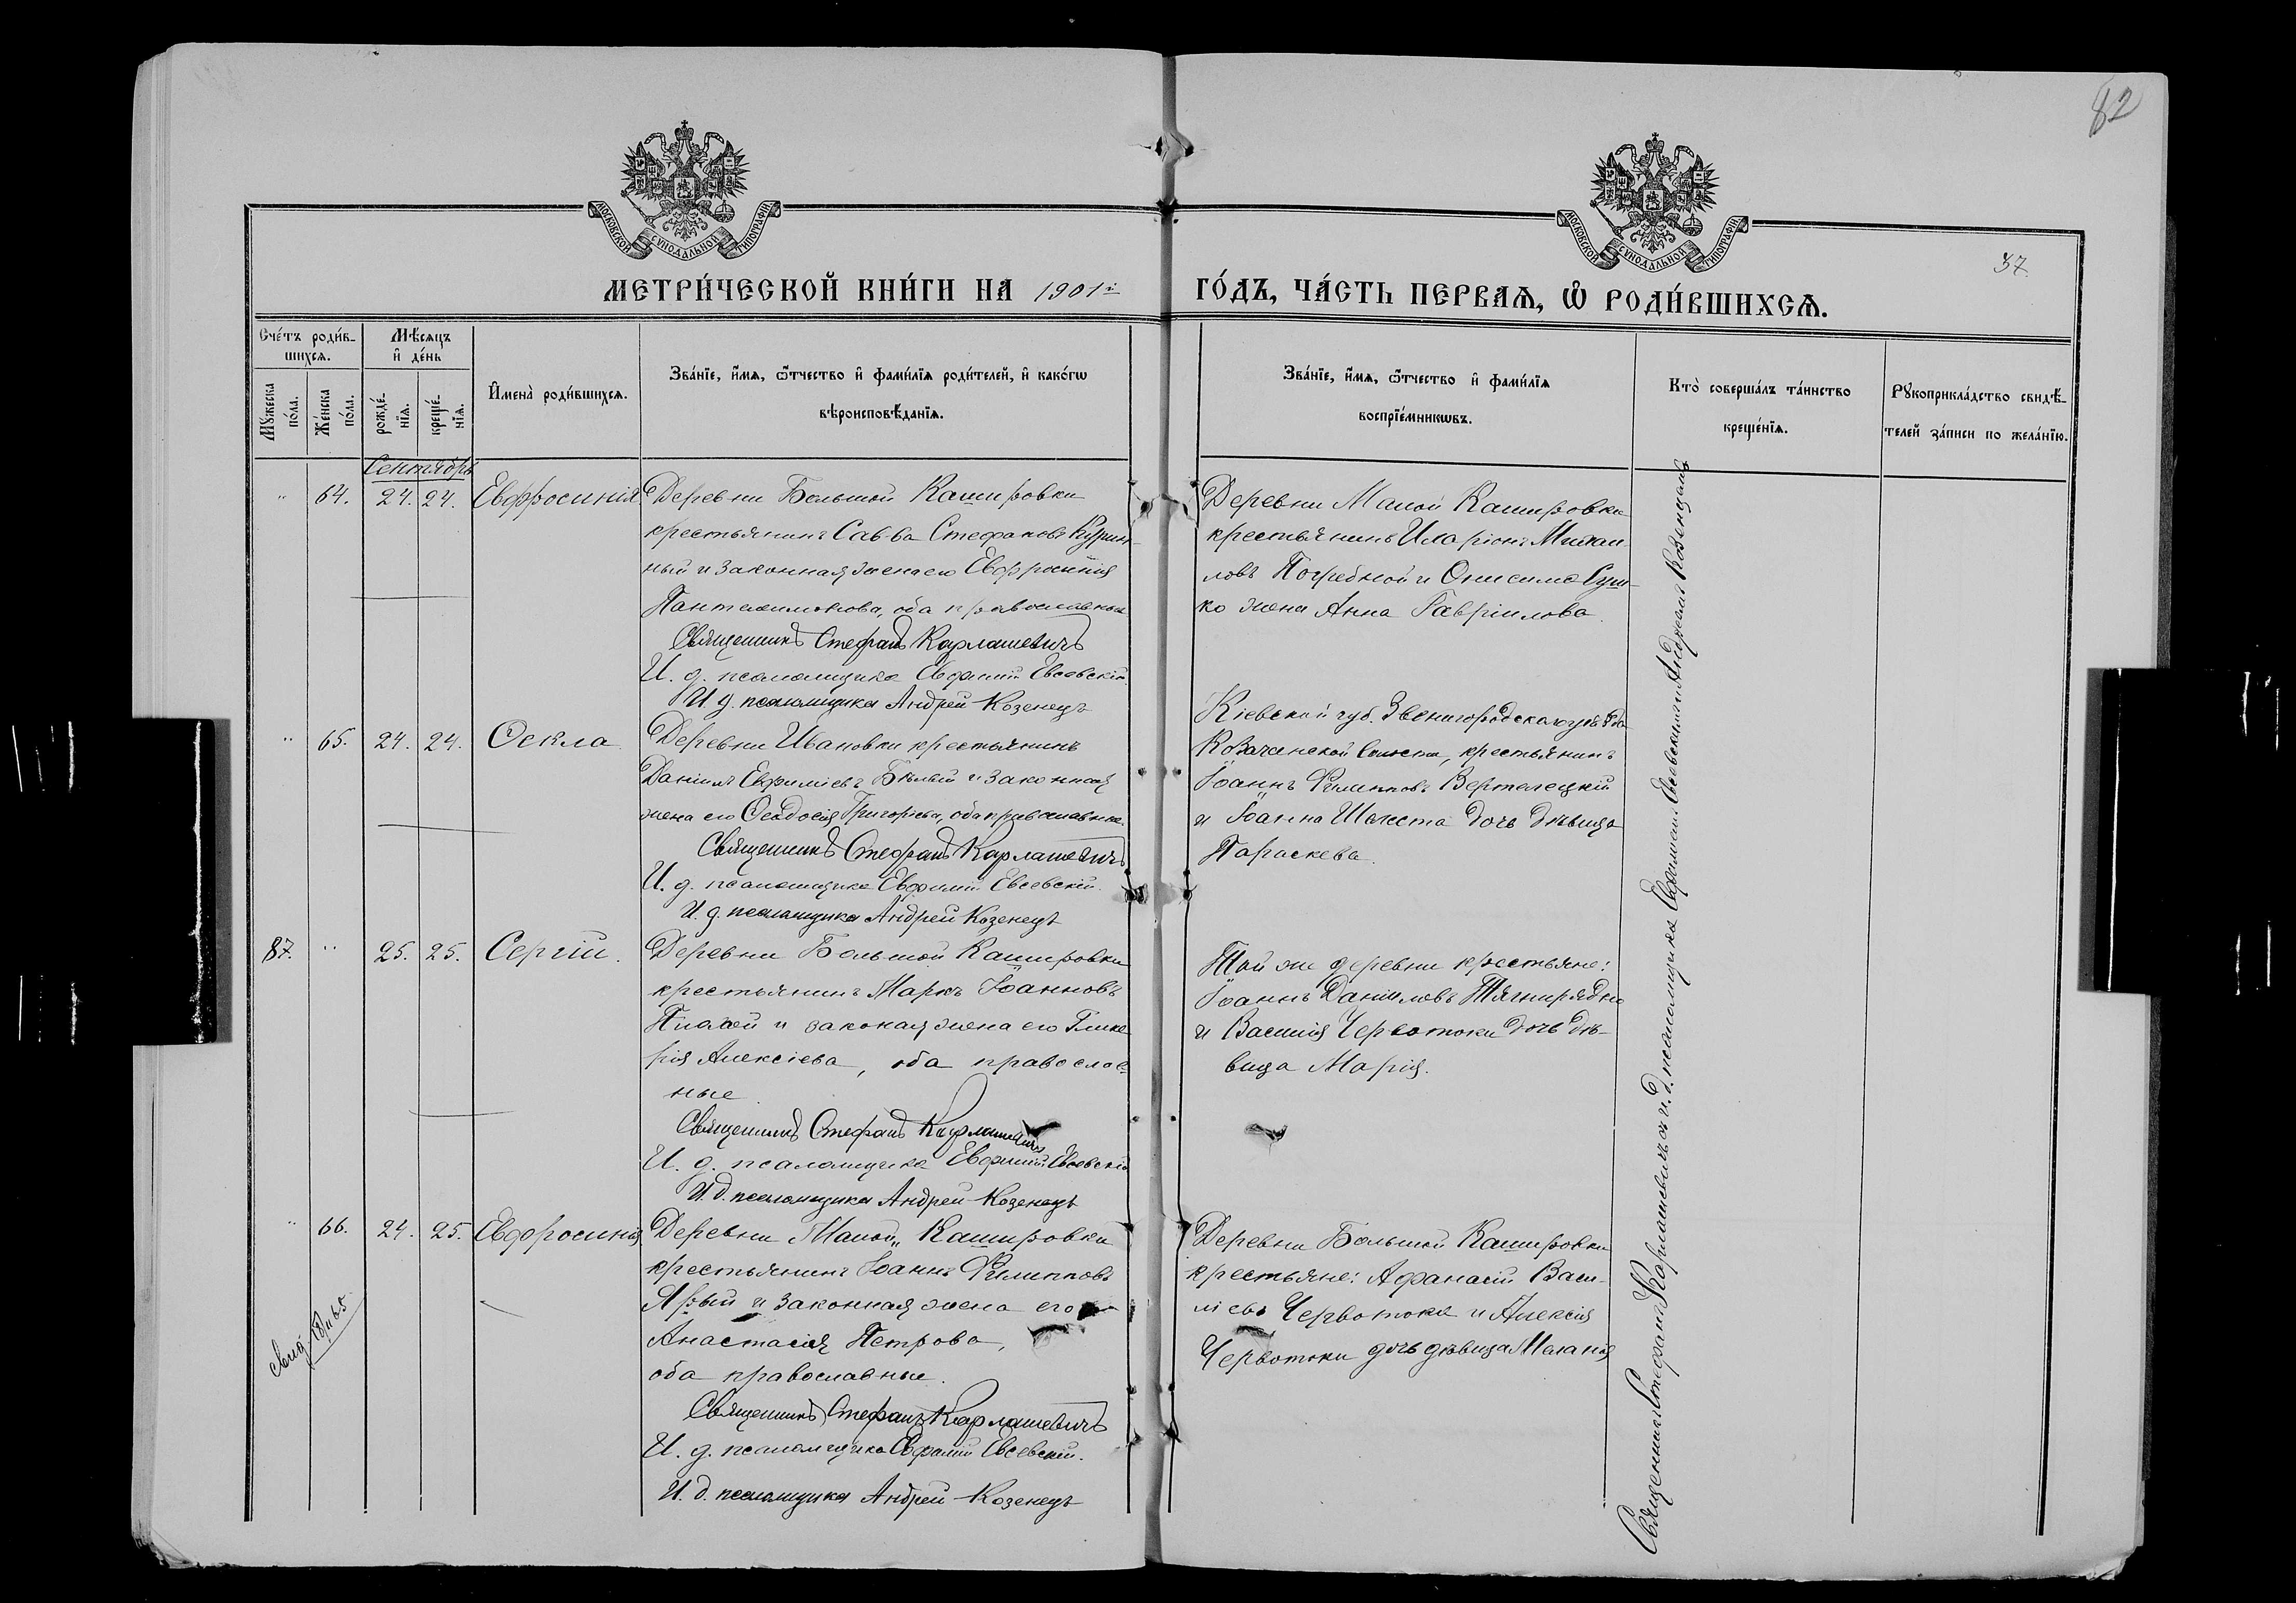 82
МОСКОВСКОЙ СѴНОДАЛЬНОЙ ТИПОГРАФІИ
МОСКОВСКОЙ СѴНОДАЛЬНОЙ ТИПОГРАФІИ
37.
МЕТРИ́ЧЕСКОЙ КНИ́ГИ НА 1901й
ГО́ДЪ, ЧА́СТЬ ПЕРВАѦ, Ѡ РОДИ́ВШИХСѦ.
Сче́тъ роди́в-
шихсѧ.
Мꙋ́жеска по́ла.
Же́нска по́ла.
Мѣ́сѧцъ
и҆ де́нь
рожде́-
нїѧ.
креще́-
нїѧ.
И҆мена̀ роди́вшихсѧ.
Зва́нїе, и҆́мѧ, ѻ҆́тчество и҆ фами́лїѧ роди́телей, и҆ како́гѡ
вѣроисповѣ́данїѧ.
Зва́нїе, и҆́мѧ, ѻ҆́тчество и҆ фами́лїѧ
воспрїе́мникѡвъ.
Кто̀ соверша́лъ та́инство
креще́нїѧ.
Рꙋкоприкла́дство свидѣ́-
телей за́писи по жела́нїю.
Сентябрь
" 64. 24. 24. Евфросинія
Деревни Большой Кашировки
крестьянинъ Савва Стефановъ
ный и законная жена его Евфросинія
Пантелимонова, оба православные
Священникъ Стефанъ Карлашевичъ
И. д. псаломщика Евфимій Евсевскій
И. д. псаломщика Андрей Козенецъ
Деревни Малой Кашировки
крестьянинъ Иларіонъ Михаи-
ловъ Погребной и Онисима Суш-
ко жена Анна Гавріилова.
" 65. 24. 24. Ѳекла
Деревни Ивановки крестьянинъ
Даніилъ Евфиміевъ Бѣлый и законная
жена его Ѳеодосія Григорьева, оба православные.
Священникъ Стефанъ Карлашевичъ
И. д. псаломщика Евфимій Евсевскій.
И. д. псаломщика Андрей Козенецъ
Кіевской губ. Звенигородскаго уѣзда
волости, крестьянинъ
Іоаннъ Филипповъ Вертелецкій
и Іоанна Шелеста дочь дѣвица
Параскева.
87. " 25. 25. Сергій.
Деревни Большой Кашировки
крестьянинъ Маркъ Іоанновъ
и законая жена его Глике-
рія Алексіева, оба православ-
ные.
Священникъ Стефанъ Карлашевичъ
И. д. псаломщика Евфимій Евсевскій
И. д. псаломщика Андрей Козенецъ
Той же деревни крестьяне:
Іоаннъ Даніиловъ Тягнирядно
и Василія Червотоки дочь дѣ-
вица Марія.
" 66. 24. 25. Евфросинія
Деревни Малой Кашировки
крестьянинъ Іоаннъ Филипповъ
Ярый и законная жена его
Анастасія Петрова,
оба православные.
Священникъ Стефанъ Карлашевичъ
И. д. псаломщика Евфимій Евсевскій.
И. д. псаломщика Андрей Козенецъ
Деревни Большой Кашировки
крестьяне: Афанасій Васи-
ліевъ Червотока и Алексія
Червотоки дочь дѣвица Меланія
Священникъ Стефанъ Карлашевичъ и и. д. псаломщика Евфиміемъ Евсевскимъ и Андреемъ Козенцомъ